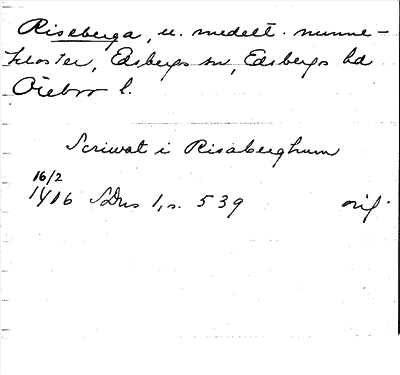 Riseberga, u. medelt. nunne-
kloster, Edsbergs sn, Edsbergs hd
Örebro l.
Scriwat i Risaberghum
16/2
1416 SDns 1, s. 539 orig.